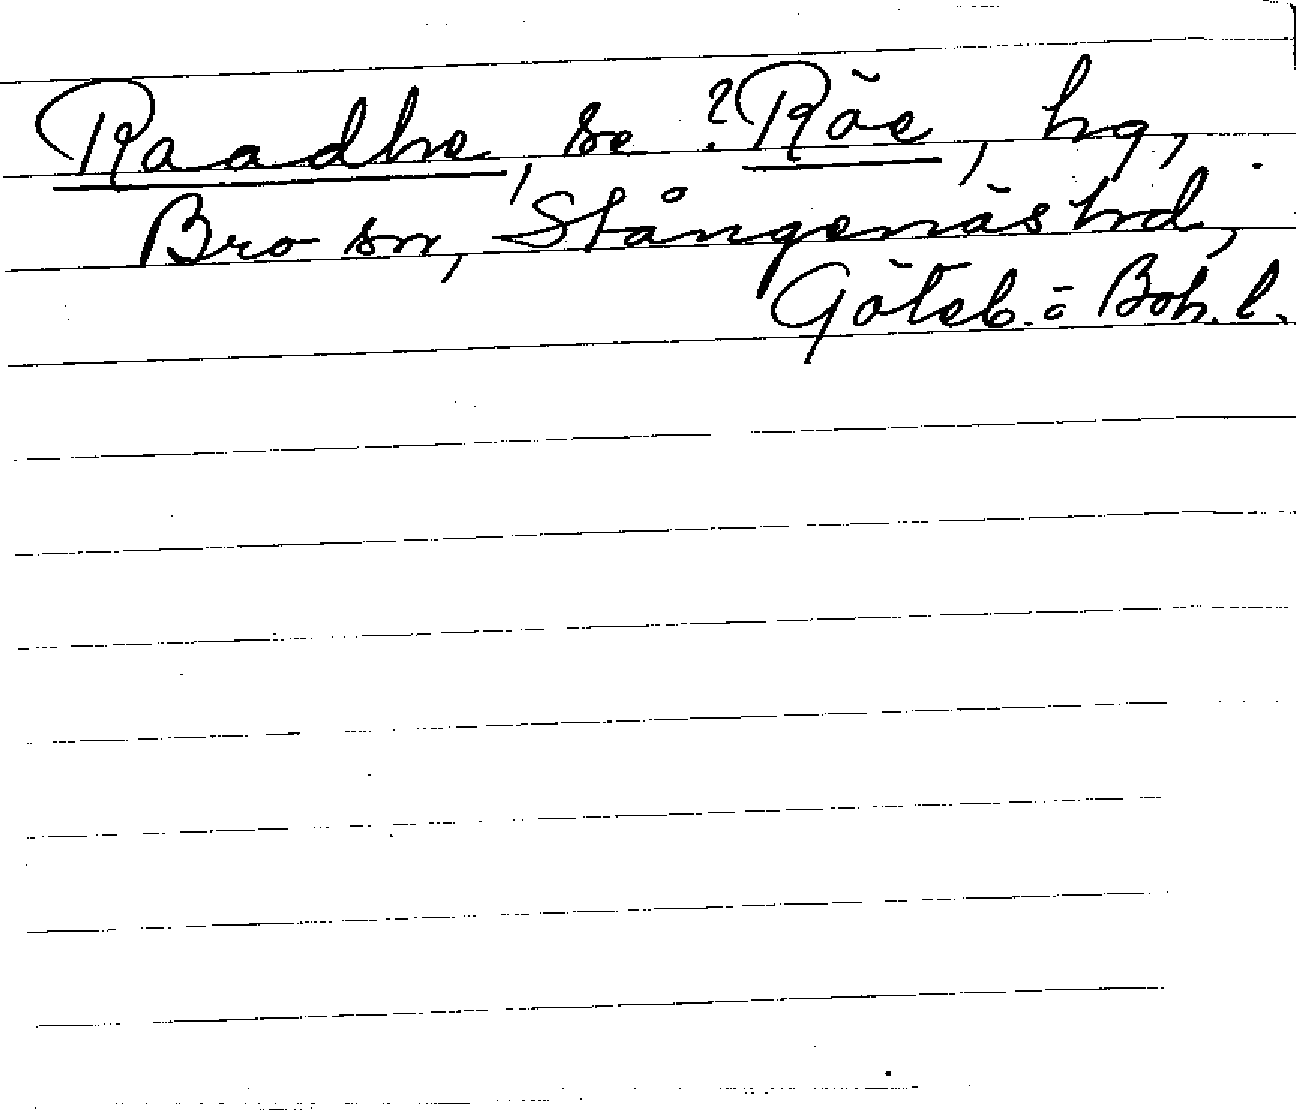 Raadhe, se ?Röe, hg,
Bro sn, Stångenäs hd,
Göteb. ō Boh. l.